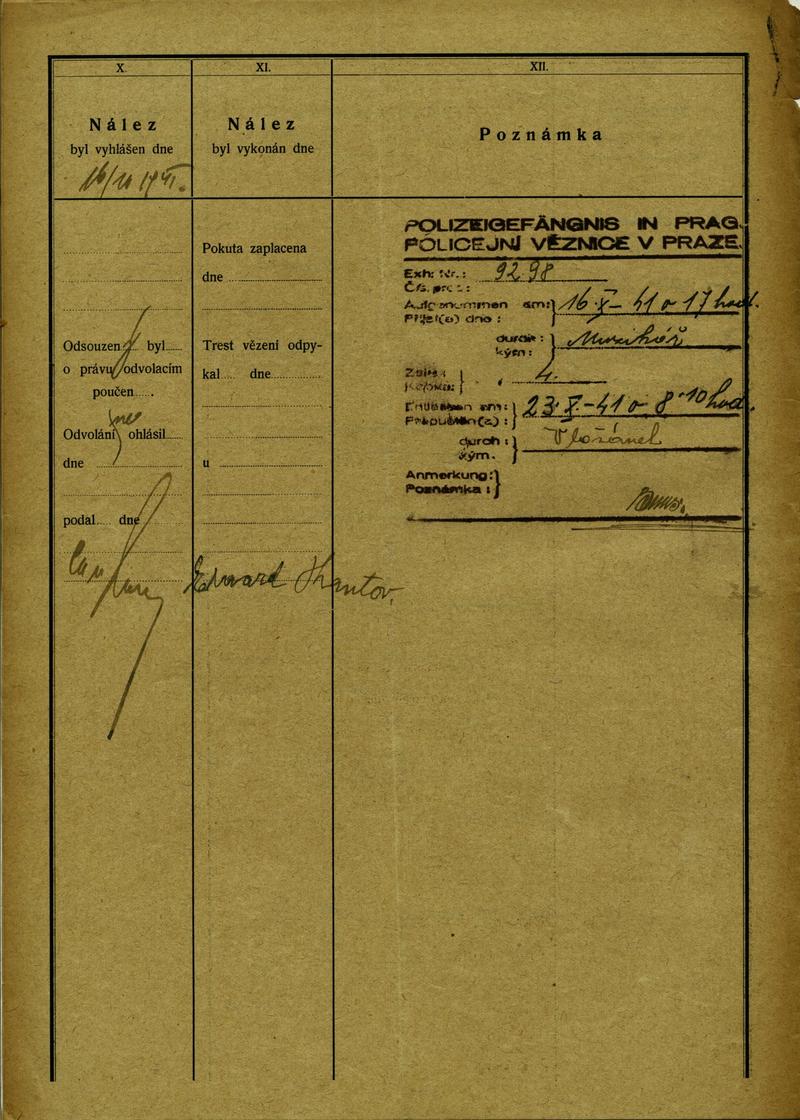 X.
Nález
byl vyhlášen dne
16/10 1941.
Odsouzen byl......
o právu odvolacím
poučen......
Odvolání ohlásil......
dne
podal...... dne
XI.
Nález
byl vykonán dne
Pokuta zaplacena
dne
Trest vězení odpy-
kal...... dne
u
Eduard Kantor
XII.
Poznámka
POLIZEIGEFÄNGNIS IN PRAG.
POLICEJNÍ VĚZNICE V PRAZE.
Exh. Nr.: 9298
Čís. prot.:
Aufgenommen am: 16 X – 41 o 17 hod.
Přijat(a) dne:
durch:
kým:
Zelle: 4.
Kobka:
Entlassen am: 23. X – 41 o 8.10 hod.
Propuštěn(a):
durch:
kým.
Anmerkung:
Poznámka: